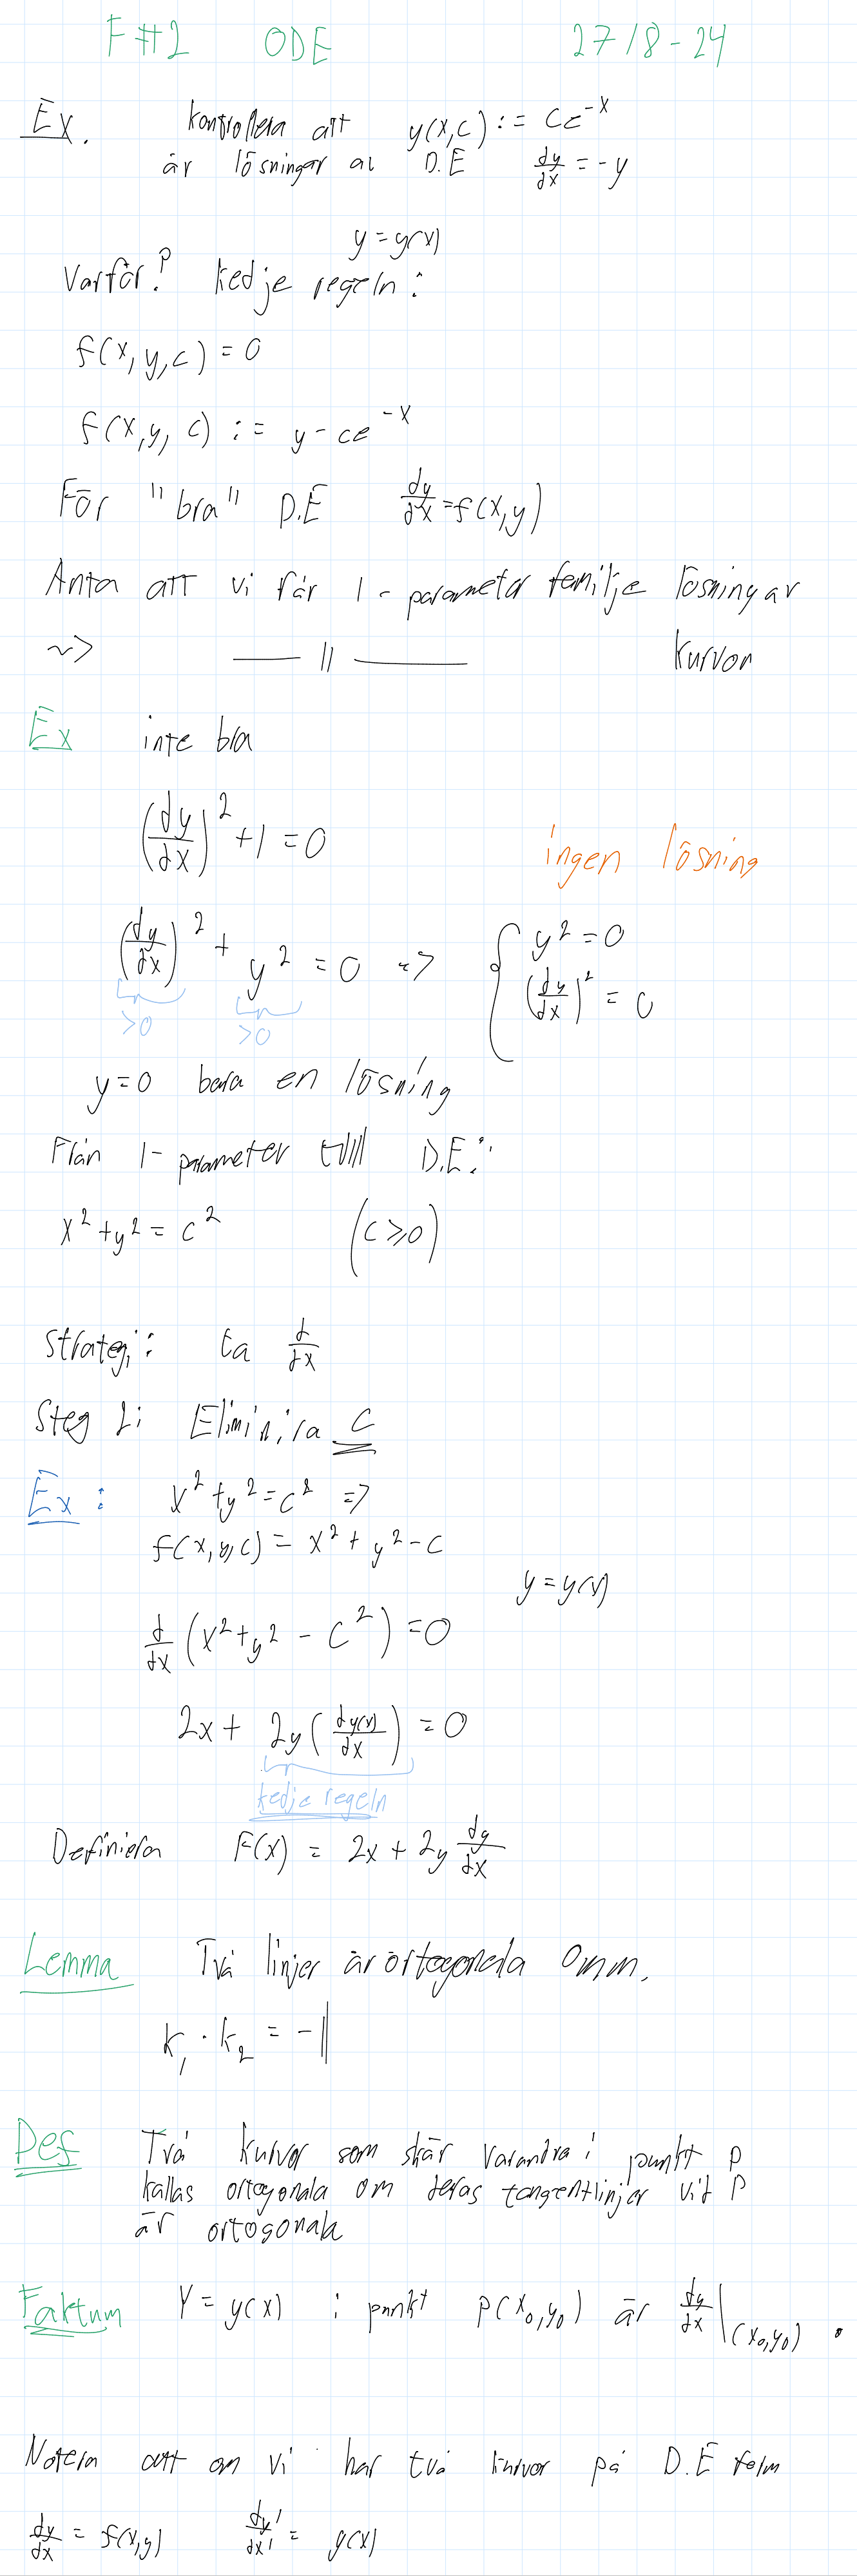 F#2 ODE 27/8-24
Ex. kontrollera att y(x,c) := ce^{-x}
är lösningar av D.E dy/dx = -y
y = y(x)
Varför? kedje regeln:
f(x,y,c) = 0
f(x,y,c) := y - ce^{-x}
För "bra" D.E dy/dx = f(x,y)
Anta att vi får 1-parameter familje lösningar
~> —— || —— kurvor
Ex inte bra
(dy/dx)^2 + 1 = 0 ingen lösning
(dy/dx)^2 + y^2 = 0 ~> { y^2 = 0
(dy/dx)^2 = 0
>0 >0
y=0 bara en lösning
Från 1-parameter till D.E:
x^2 + y^2 = c^2 (c ≥ 0)
Strategi: ta d/dx
Steg 2: Eliminira c
Ex: x^2 + y^2 = c^2 =>
f(x,y,c) = x^2 + y^2 - c
y = y(x)
d/dx (x^2 + y^2 - c^2) = 0
2x + 2y (dy(x)/dx) = 0
kedje regeln
Definiera F(x) = 2x + 2y dy/dx
Lemma Två linjer är ortogonala omm.
k_1 · k_2 = -1
Def Två kurvor som skär varandra i punkt p
kallas ortogonala om deras tangentlinjer vid P
är ortogonala
Faktum Y = y(x) i punkt p(x_0,y_0) är dy/dx|_(x_0,y_0) .
Notera att om vi har två kurvor på D.E form
dy/dx = f(x,y) dy'/dx' = g(x)